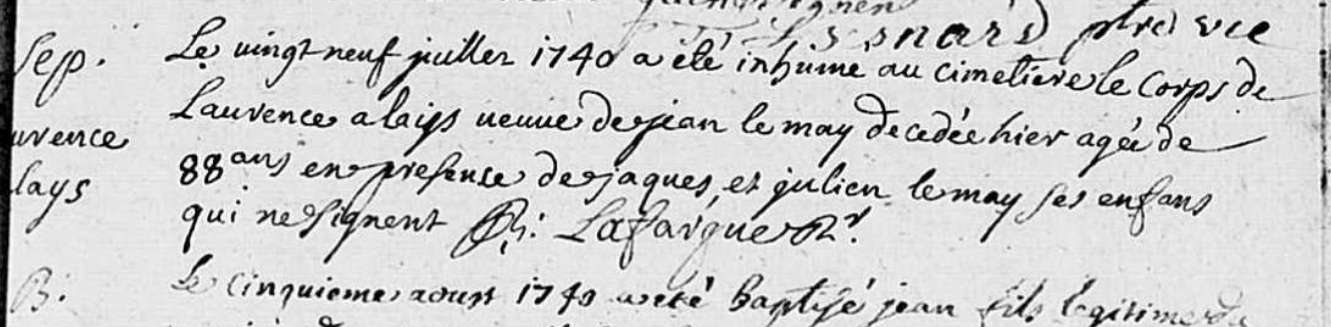 Lesnard ptre vic
Sep. Le vingt neuf juillet 1740 a été inhume au cimetiere le corps de
urence Laurence alays veuve de jean le may decedée hier agée de
lays 88 ans en presence de jaques, et julien le may ses enfans
qui ne signent Ph: Lafargue Rr.
B. Le cinquieme aoust 1740 a eté baptisé jean fils legitime de